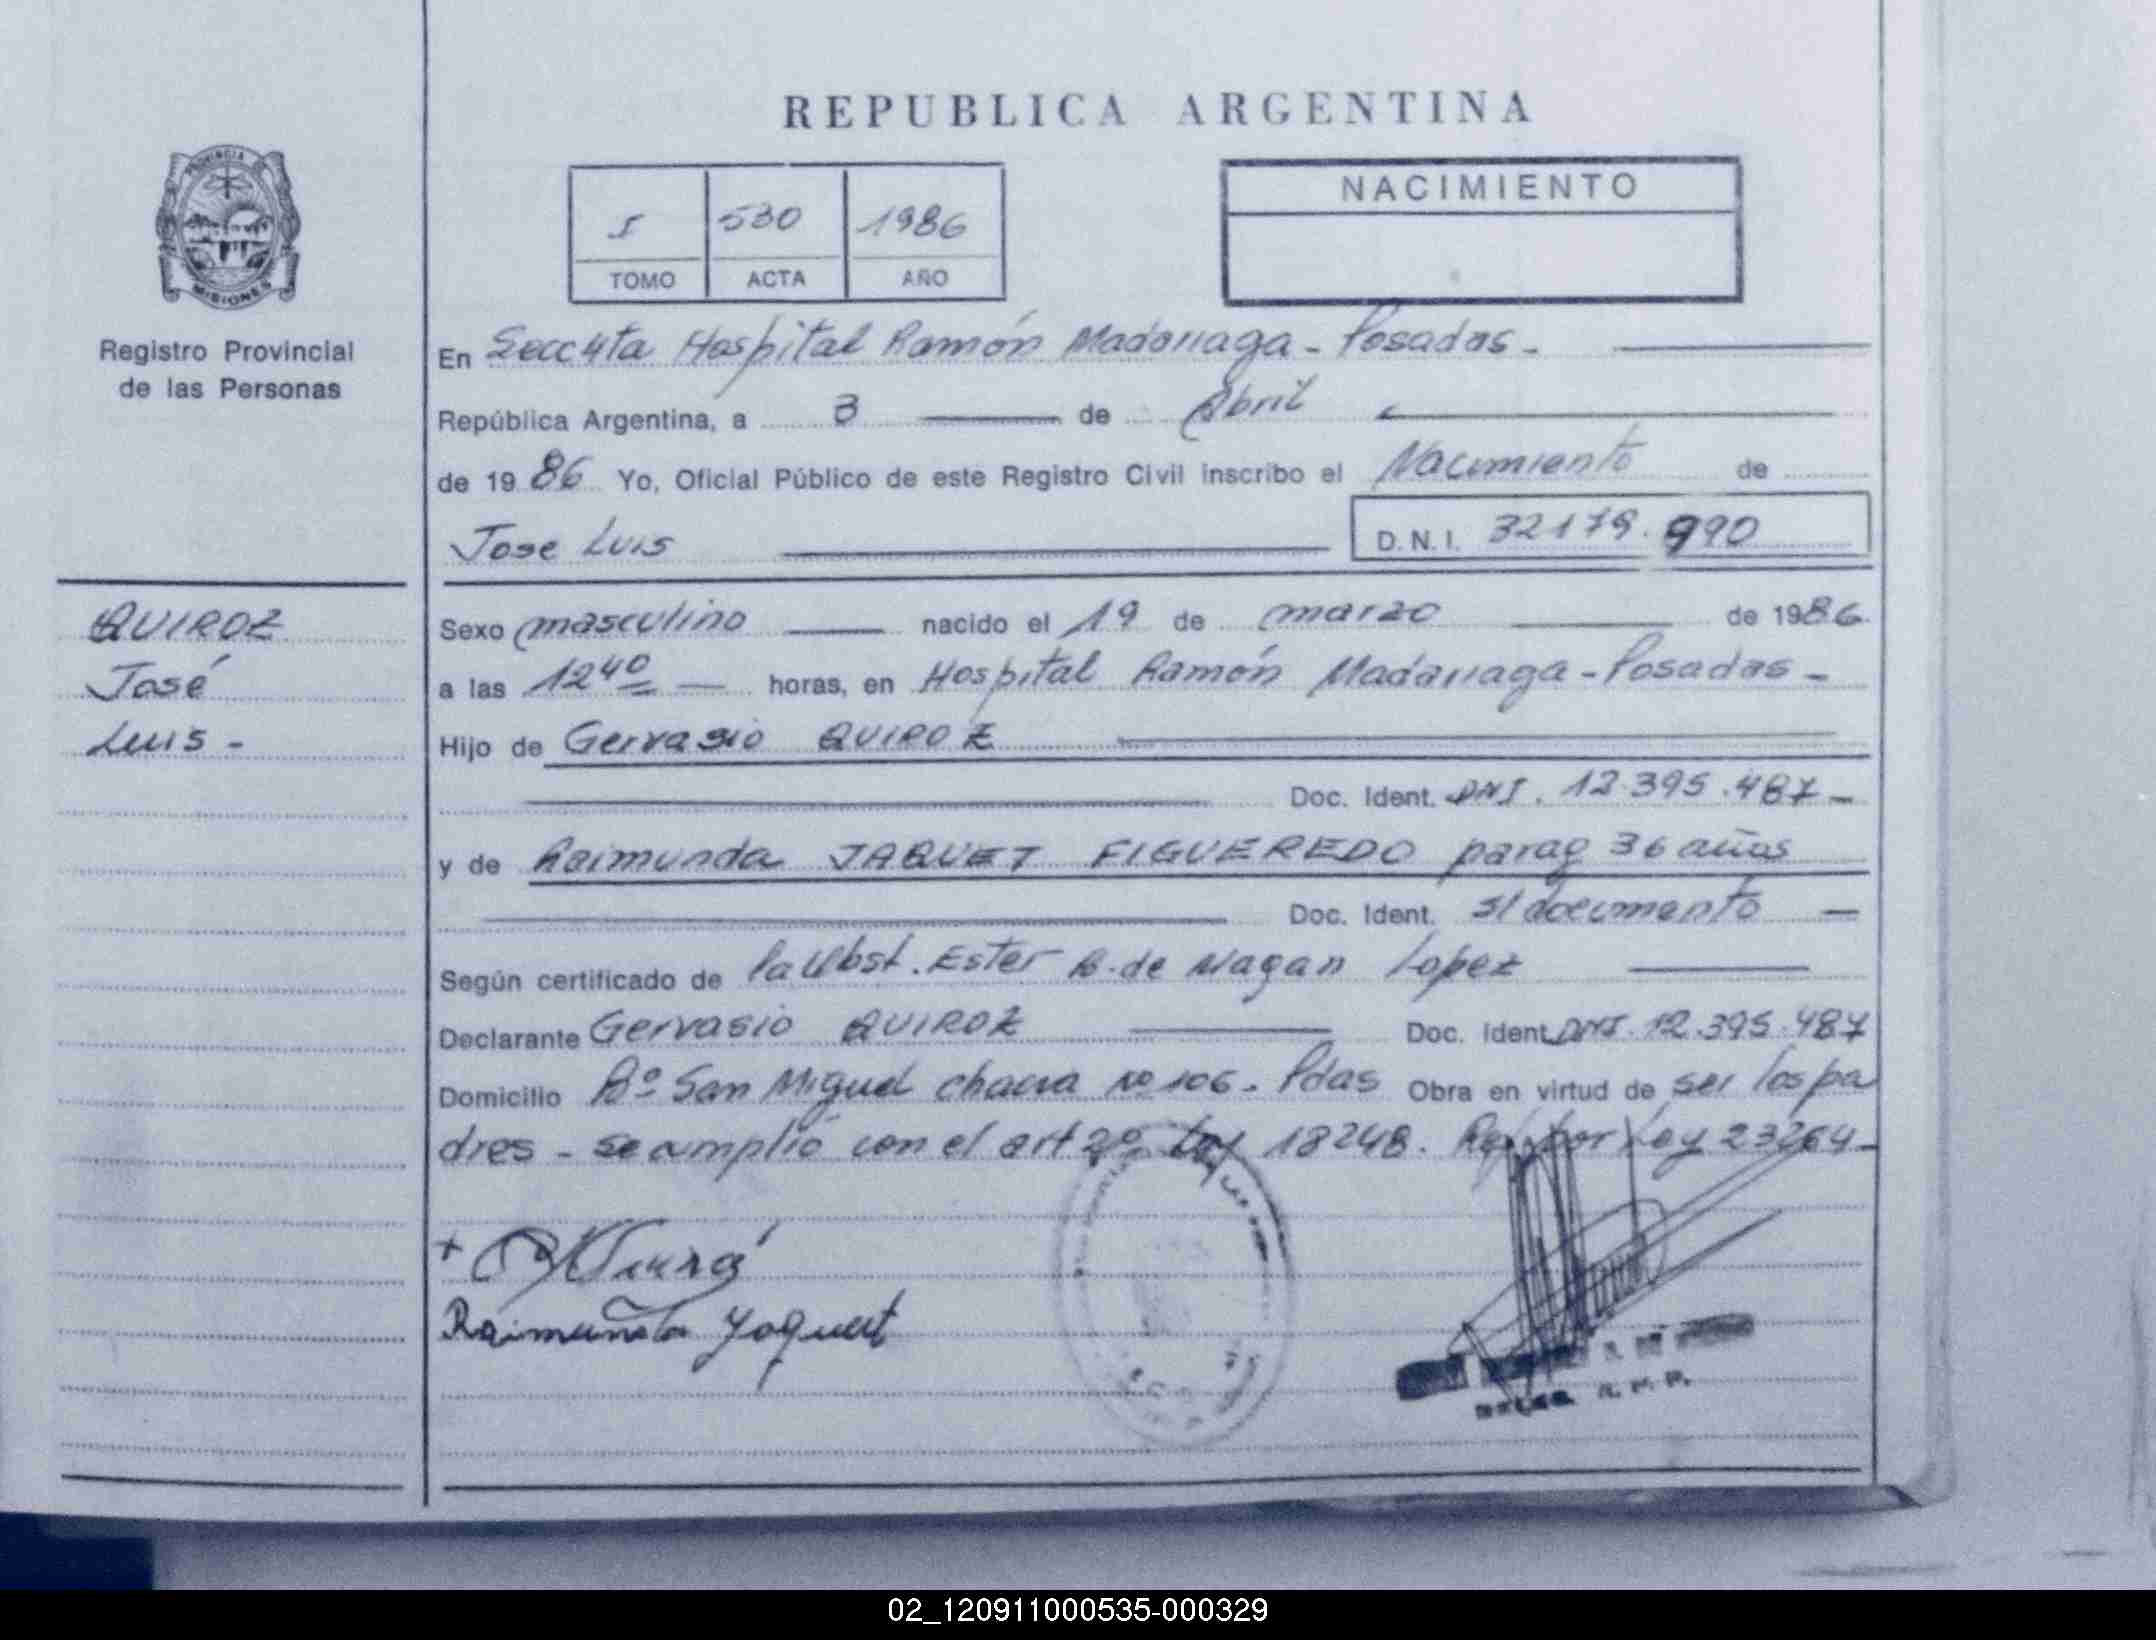 REPUBLICA ARGENTINA
PROVINCIA DE
MISIONES
Registro Provincial
de las Personas
530 1986
TOMO ACTA AÑO
NACIMIENTO
En Secc 4ta Hospital Ramón Madariaga - Posadas -
República Argentina, a 3 de Abril
de 1986 Yo, Oficial Público de este Registro Civil inscribo el Nacimiento de
Jose Luis D.N.I. 32179.990
QUIROZ
José
Luis -
Sexo masculino nacido el 19 de marzo de 1986.
a las 12 40 horas, en Hospital Ramón Madariaga - Posadas -
Hijo de Gervasio QUIROZ
Doc. Ident. DNI. 12.395.487 -
y de Raimunda JAQUET FIGUEREDO parag 36 años
Doc. Ident. s/documento -
Según certificado de la Obst. Ester B. de Magan Lopez
Declarante Gervasio QUIROZ Doc. Ident. DNI. 12.395.487
Domicilio Bº San Miguel chacra nº 106 - Pdas Obra en virtud de ser los pa
dres - se cumplió con el art 2º Ley 18248. por Ley 23264 -
Raimunda Yaquet
02_120911000535-000329